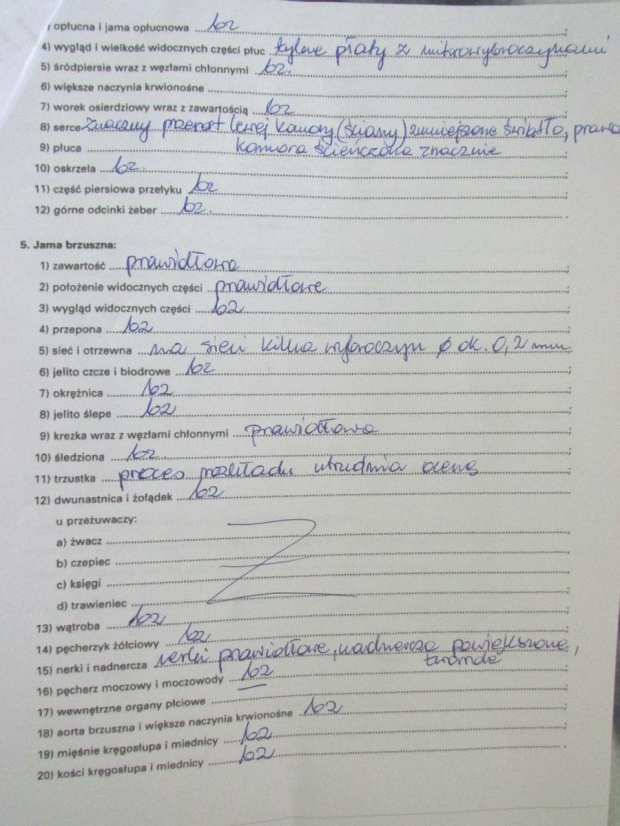 opłucna i jama opłucnowa bz
4) wygląd i wielkość widocznych części płuc tylne płaty z mikrowybroczynami
5) śródpiersie wraz z węzłami chłonnymi bz.
6) większe naczynia krwionośne
7) worek osierdziowy wraz z zawartością bz
8) serce znaczny przerost lewej komory (ściany) zmniejszone światło, prawa
9) płuca komora ścieńczała znacznie
10) oskrzela bz.
11) część piersiowa przełyku bz
12) górne odcinki żeber bz.
5. Jama brzuszna:
1) zawartość prawidłowa
2) położenie widocznych części prawidłowe
3) wygląd widocznych części bz
4) przepona bz
5) sieć i otrzewna na sieci kilka wybroczyn ø ok. 0,2 mm.
6) jelito czcze i biodrowe bz
7) okrężnica bz
8) jelito ślepe bz
9) krezka wraz z węzłami chłonnymi prawidłowa
10) śledziona bz
11) trzustka proces rozkładu utrudnia ocenę
12) dwunastnica i żołądek bz
u przeżuwaczy:
a) żwacz
b) czepiec
c) księgi
d) trawieniec
13) wątroba bz
14) pęcherzyk żółciowy bz
15) nerki i nadnercza nerki prawidłowe, nadnercza powiększone,
twarde
16) pęcherz moczowy i moczowody bz
17) wewnętrzne organy płciowe
18) aorta brzuszna i większe naczynia krwionośne bz
19) mięśnie kręgosłupa i miednicy bz
20) kości kręgosłupa i miednicy bz